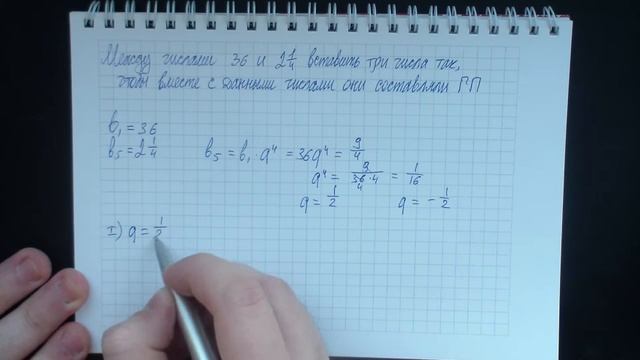 Между числами 36 и 2 1/4 вставить три числа так,
чтобы вместе с данными числами они составляли ГП
b₁ = 36
b₅ = 2 1/4
b₅ = b₁ · q⁴ = 36q⁴ = 9/4
q⁴ = 9/(36·4) = 1/16
4
q = 1/2 q = - 1/2
I) q = 1/2